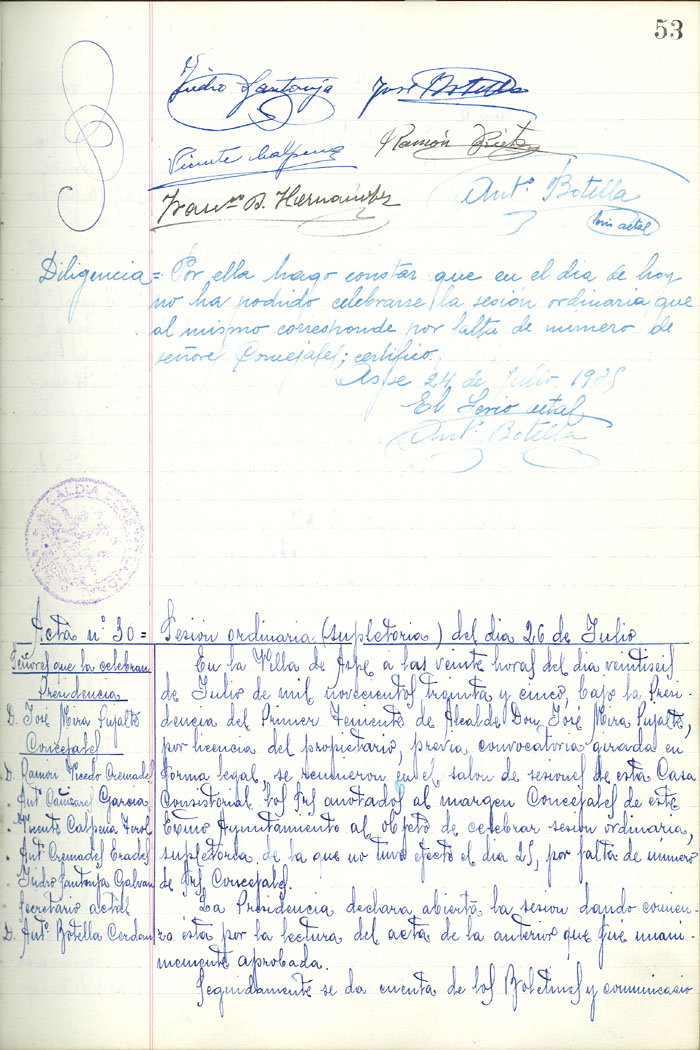 53
Isidro Santonja José Botella
Vicente Calpena Ramón
Franco. B. Hernandez
Anto. Botella
srio actal
Diligencia = Por ella hago constar que en el dia de hoy
no ha podrido celebrarse la sesión ordinaria que
al mismo corresponde por falta de numero de
señores Concejales; certifico.
Aspe 24 de Julio 1935
El Srio actal
Anto. Botella
ALCALDIA
Acta nº 30 = Sesion ordinaria (supletoria) del dia 26 de Julio
Señores que la celebran
Presidencia
D. José Mira Pujalte
Concejales
D. Ramón Vicedo Cremades
. Anto. Cañizares Garcia
. Vicente Calpena Terol
. Anto. Cremades Erades
. Isidro Santonja Galvan
Secretario actal
D. Anto. Botella Cerdan
En la Villa de Aspe a las veinte horas del dia veintiseis
de Julio de mil novecientos treinta y cinco, bajo la Presi-
dencia del Primer Teniente de Alcalde Don José Mira Pujalte,
por licencia del propietario, previa convocatoria girada en
forma legal, se reunieron en el salon de sesiones de esta Casa
Consistorial los Srs anotados al margen Concejales de este
Excmo Ayuntamiento al objeto de celebrar sesion ordinaria,
supletoria de la que no tuvo efecto el dia 25, por falta de numero
de Srs Concejales.
La Presidencia declara abierta la sesion dando comien-
zo esta por la lectura del acta de la anterior que fue unani-
memente aprobada.
Seguidamente se da cuenta de los Boletines y comunicacio